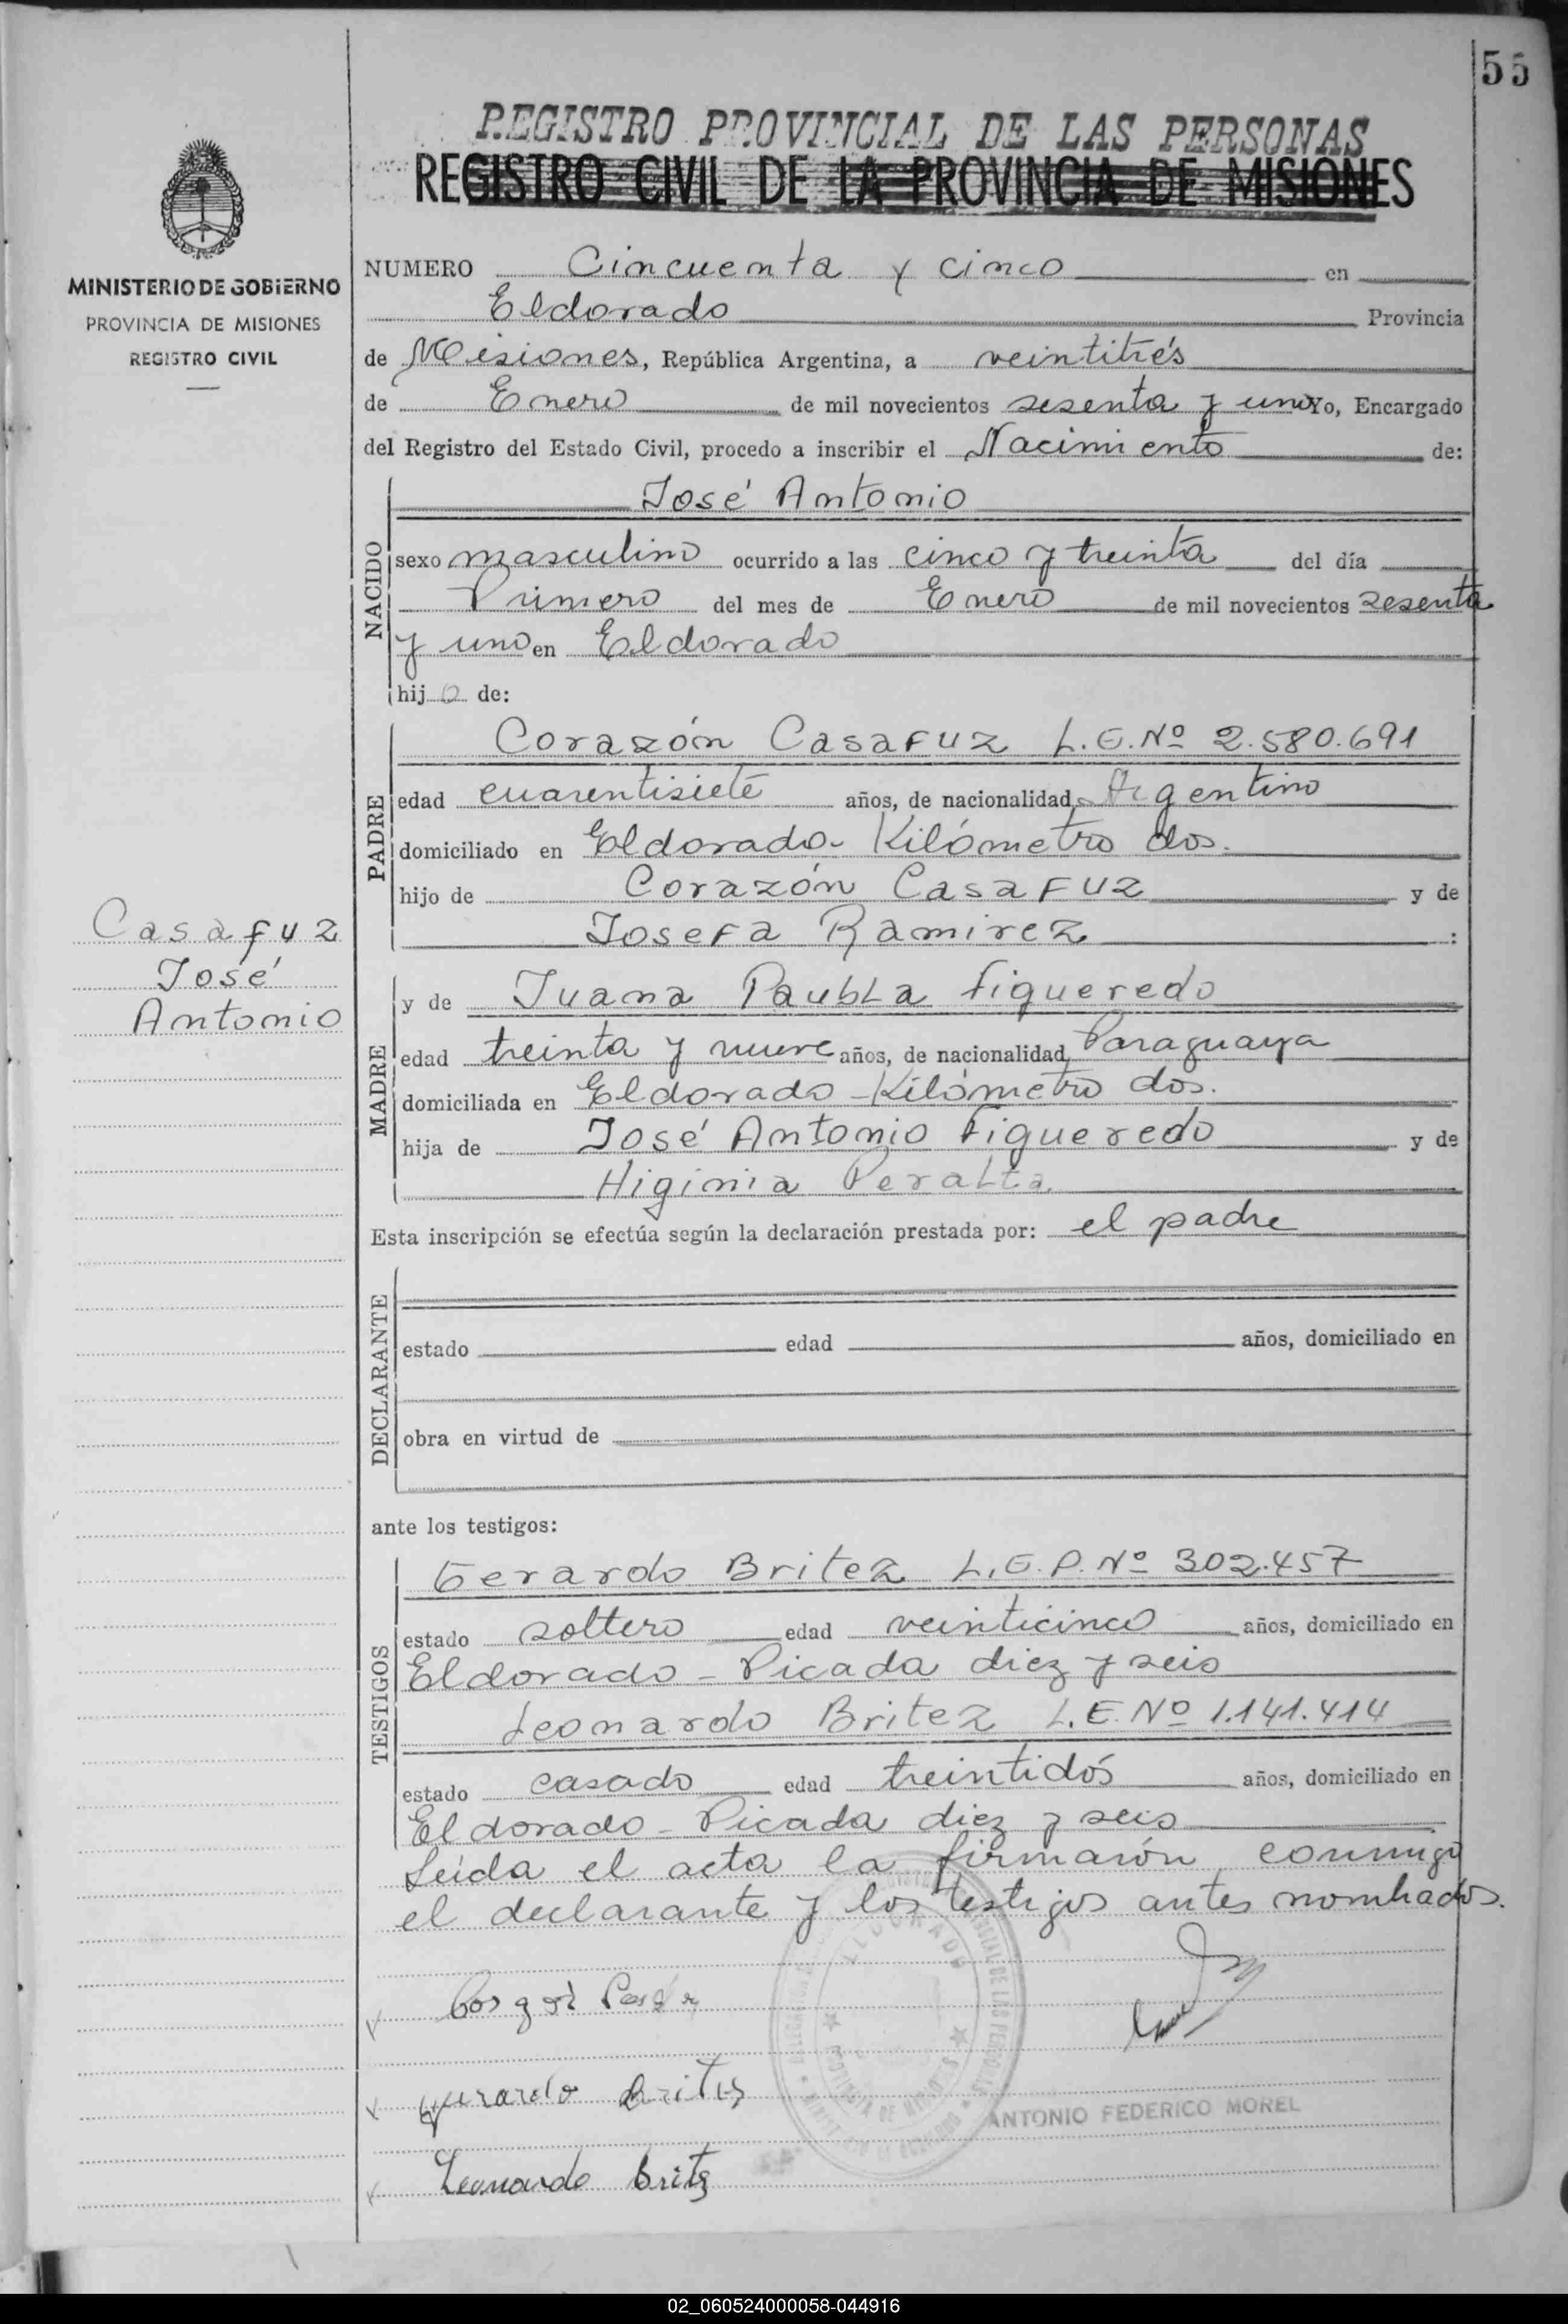 55
REGISTRO PROVINCIAL DE LAS PERSONAS
REGISTRO CIVIL DE LA PROVINCIA DE MISIONES
MINISTERIO DE GOBIERNO
PROVINCIA DE MISIONES
REGISTRO CIVIL
NUMERO Cincuenta y cinco en
Eldorado Provincia
de Misiones, República Argentina, a veintitrés
de Enero de mil novecientos sesenta y uno Yo, Encargado
del Registro del Estado Civil, procedo a inscribir el Nacimiento de:
NACIDO
José Antonio
sexo masculino ocurrido a las cinco y treinta del día
Primero del mes de Enero de mil novecientos sesenta
y uno en Eldorado
hijo de:
PADRE
Corazón Casafuz L.E.Nº 2.580.691
edad cuarentisiete años, de nacionalidad Argentino
domiciliado en Eldorado- Kilómetro dos.
hijo de Corazón Casafuz y de
Josefa Ramirez :
Casafuz
José
Antonio
MADRE
y de Juana Paubla Figueredo
edad treinta y nueve años, de nacionalidad Paraguaya
domiciliada en Eldorado - Kilómetro dos.
hija de José Antonio Figueredo y de
Higinia Peralta.
Esta inscripción se efectúa según la declaración prestada por: el padre
DECLARANTE
estado edad años, domiciliado en
obra en virtud de
ante los testigos:
TESTIGOS
Gerardo Britez L.E.P.Nº 302.457
estado soltero edad veinticinco años, domiciliado en
Eldorado - Picada diez y seis
Leonardo Britez L.E.Nº 1.141.414
estado casado edad treintidós años, domiciliado en
Eldorado - Picada diez y seis
Leída el acta la firmarón conmigo
el declarante y los testigos antes nombrados.
ELDORADO
PROVINCIA DE MISIONES
Gerardo Britez
ANTONIO FEDERICO MOREL
Leonardo Britz
02_060524000058-044916